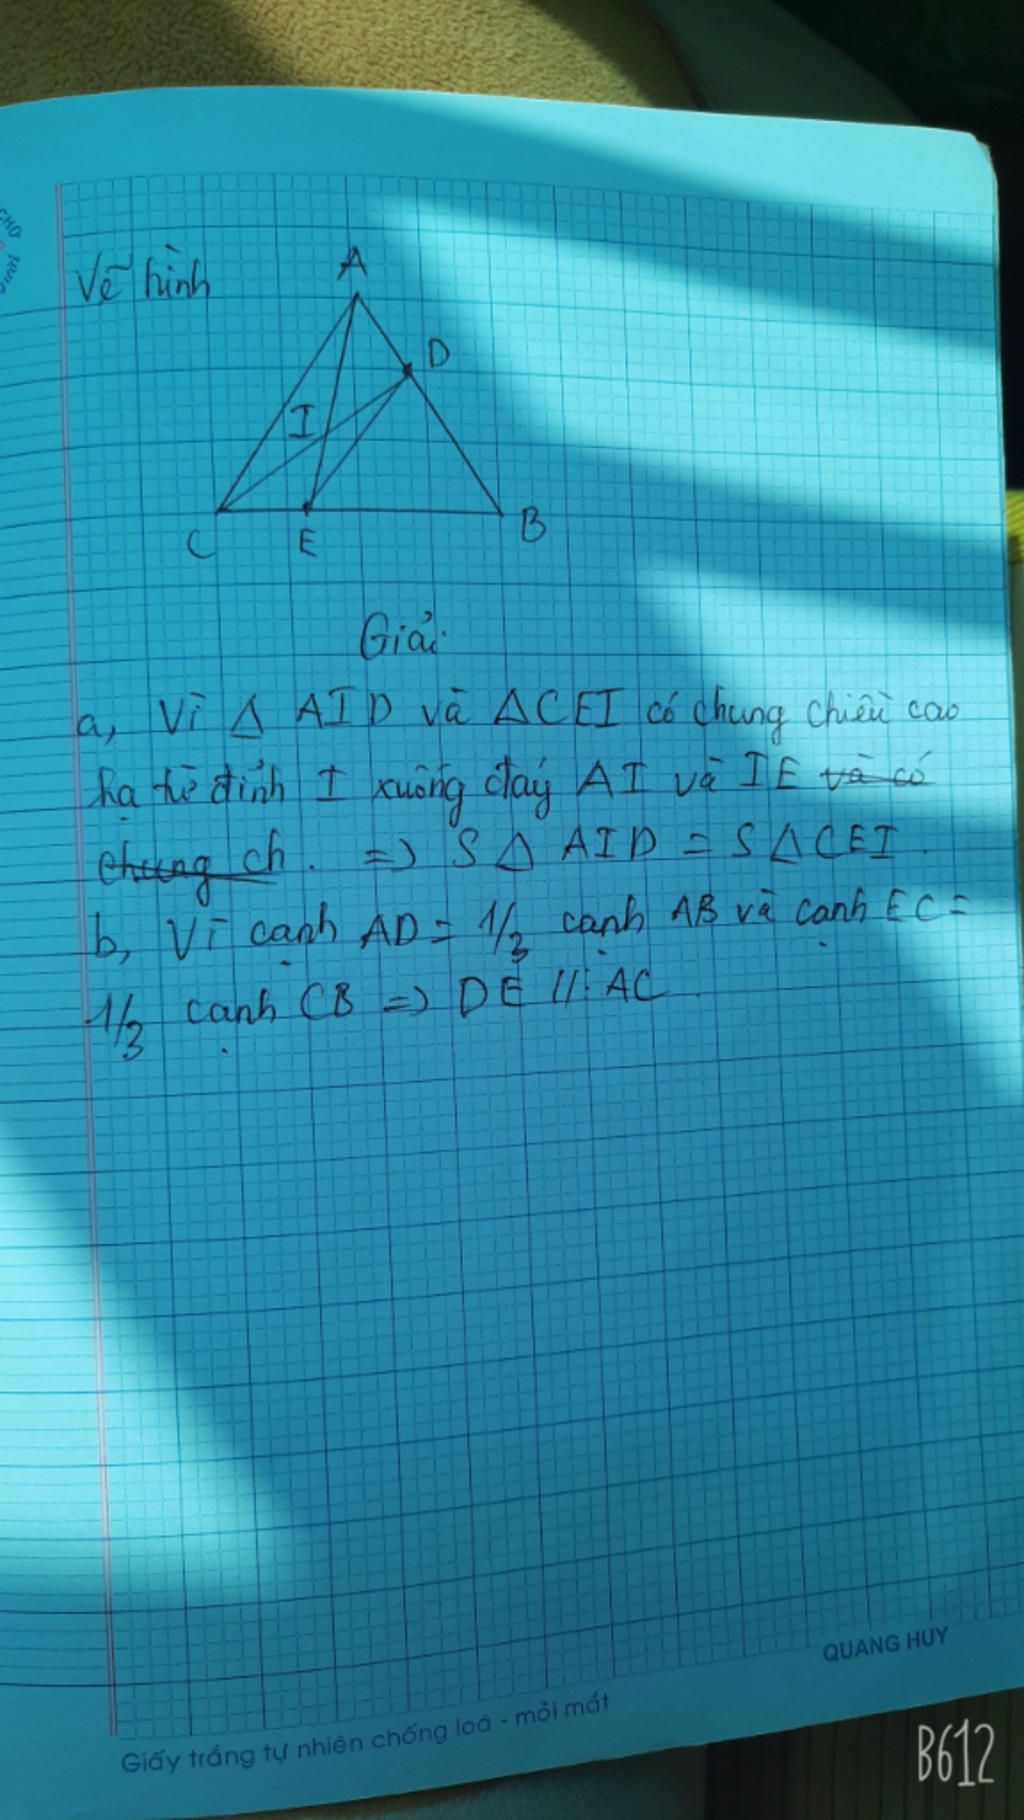 Vẽ hình
A
D
I
C
E
B
Giải:
a, Vì Δ AID và ΔCEI có chung chiều cao
hạ từ đỉnh I xuống đáy AI và IE và có
chung ch. => S Δ AID = S ΔCEI.
b, Vì cạnh AD = 1/3 cạnh AB và cạnh EC =
1/3 cạnh CB => DE // AC
QUANG HUY
Giấy trắng tự nhiên chống loá - mỏi mắt
B612